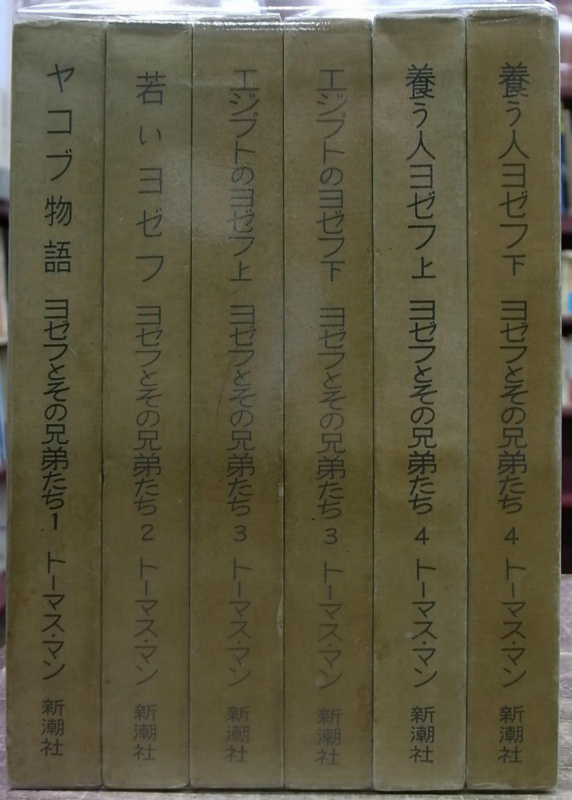 ヤコブ物語 ヨゼフとその兄弟たち1 トーマス・マン 新潮社
若いヨゼフ ヨゼフとその兄弟たち2 トーマス・マン 新潮社
エジプトのヨゼフ上 ヨゼフとその兄弟たち3 トーマス・マン 新潮社
エジプトのヨゼフ下 ヨゼフとその兄弟たち3 トーマス・マン 新潮社
養う人ヨゼフ上 ヨゼフとその兄弟たち4 トーマス・マン 新潮社
養う人ヨゼフ下 ヨゼフとその兄弟たち4 トーマス・マン 新潮社